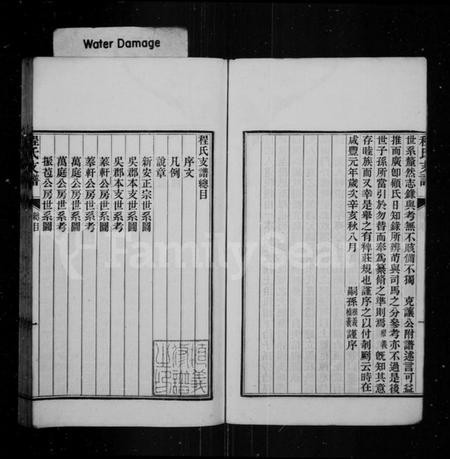 Water Damage
世系釐然志錄與考無不賅備不獨 克讓公附譜述言可益
推而廣卽顧氏日知錄所辨苟與司馬之分參考亦不過是後
世子孫所當引於勿替而奉為纂脩之準則焉 既知其意
存睦族而又幸是舉之有裨莊規也謹序之以付剞劂云時在
咸豐元年歲次辛亥秋八月
嗣孫 謹序
程氏支譜
程氏支譜總目
序文
凡例
說章
新安正宗世系圖
吳郡本支世系圖
吳郡本支世系考
莘軒公房世系圖
莘軒公房世系考
萬庭公房世系圖
萬庭公房世系考
振苞公房世系圖
程氏支譜
總目
Family Search